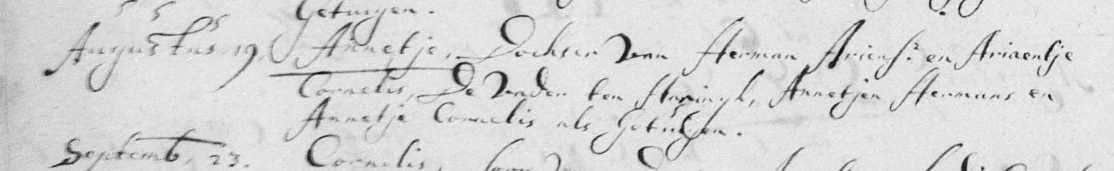 Getuigen.
Augustus 19. Annetje, Dochter van Herman Ariens: en Ariaentje
Cornelis, De Vader ten Annetjen Hermans en
Annetje Cornelis als Getuigen.
Septemb. 23. Cornelis, soon van